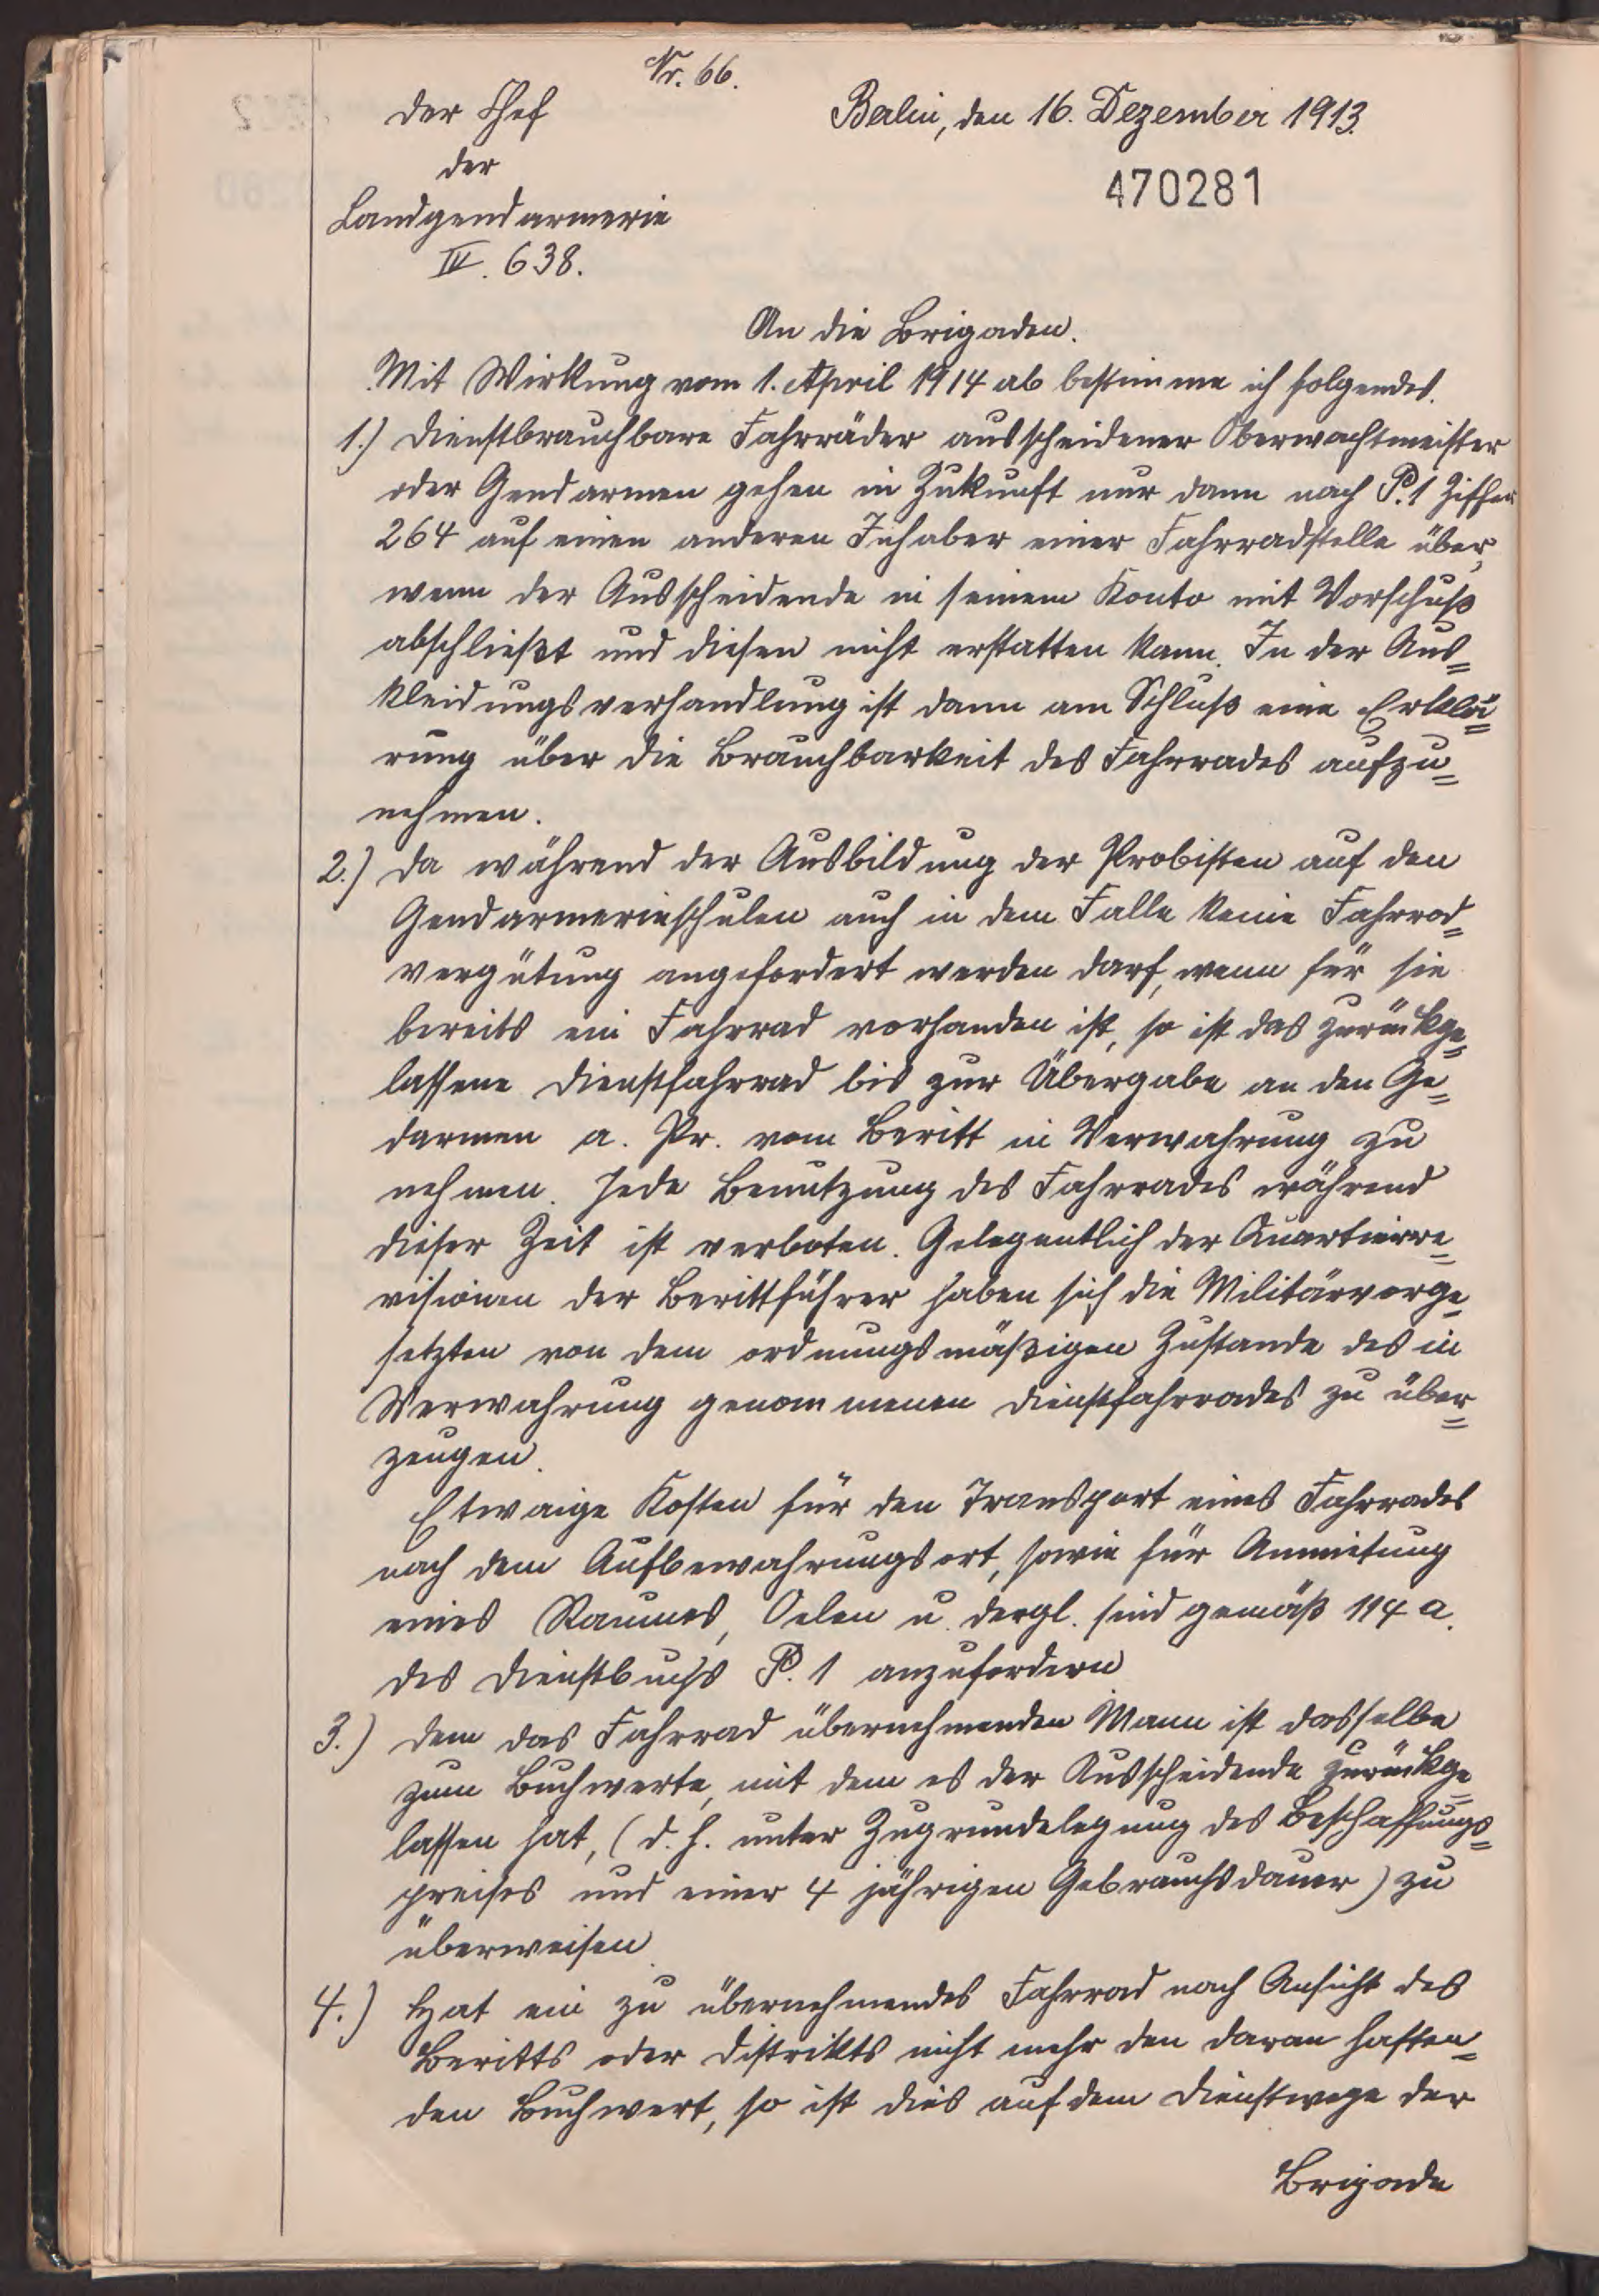 Nr. 66.
Der Chef
der
Landgendarmerie
IV. 638.
Berlin, den 16. Dezember 1913.
470281
An die Brigaden.
Mit Wirkung vom 1. April 1914 ab bestimme ich folgendes.
1.) Dienstbrauchbare Fahrräder ausscheidener Oberwachtmeister
oder Gendarmen gehen in Zukunft nur dann nach P. 1 Ziffer
264 auf einen anderen Inhaber einer Fahrradstelle über,
wenn der Ausscheidende in seinem Konto mit Vorschuß
abschließt und diesen nicht erstatten kann. In der Aus=
kleidungsverhandlung ist dann am Schluß eine Erklä=
rung über die Brauchbarkeit des Fahrrades aufzu=
nehmen.
2.) Da während der Ausbildung der Probisten auf den
Gendarmerieschulen auch in dem Falle keine Fahrrad=
vergütung angefordert werden darf, wenn für sie
bereits ein Fahrrad vorhanden ist, so ist das zurückge=
lassene Dienstfahrrad bis zur Übergabe an den Ge=
darmen a. Pr. vom Beritt in Verwahrung zu
nehmen. Jede Benutzung des Fahrrades während
dieser Zeit ist verboten. Gelegentlich der Quartierre=
visionen der Berittführer haben sich die Militärvorge=
setzten von dem ordnungsmäßigen Zustande des in
Verwahrung genommenen Dienstfahrrades zu über=
zeugen.
Etwaige Kosten für den Transport eines Fahrrades
nach dem Aufbewahrungsort, sowie für Anmietung
eines Raumes, Oelen u. dergl. sind gemäß 114 a.
des Dienstbuchs P. 1 anzufordern
3.) Dem das Fahrrad übernehmenden Mann ist dasselbe
zum Buchwerte, mit dem es der Ausscheidende zurückge=
lassen hat, (d. h. unter Zugrundelegung des Beschaffungs=
preises und einer 4 jährigen Gebrauchsdauer) zu
überweisen.
4.) Hat ein zu übernehmendes Fahrrad nach Ansicht des
Beritts oder Distrikts nicht mehr den daran haften=
den Buchwert, so ist dies auf dem Dienstwege der
Brigade